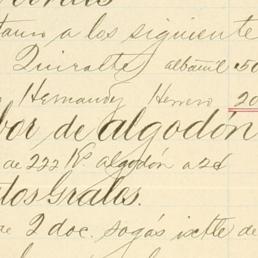 a los siguiente
Quiralte albañil 50
Hernandez Herrero 20
bor de algodón
de 222 Ks. algodón a 2¢
tos Grales.
de 2 doc. sogas ixtle de